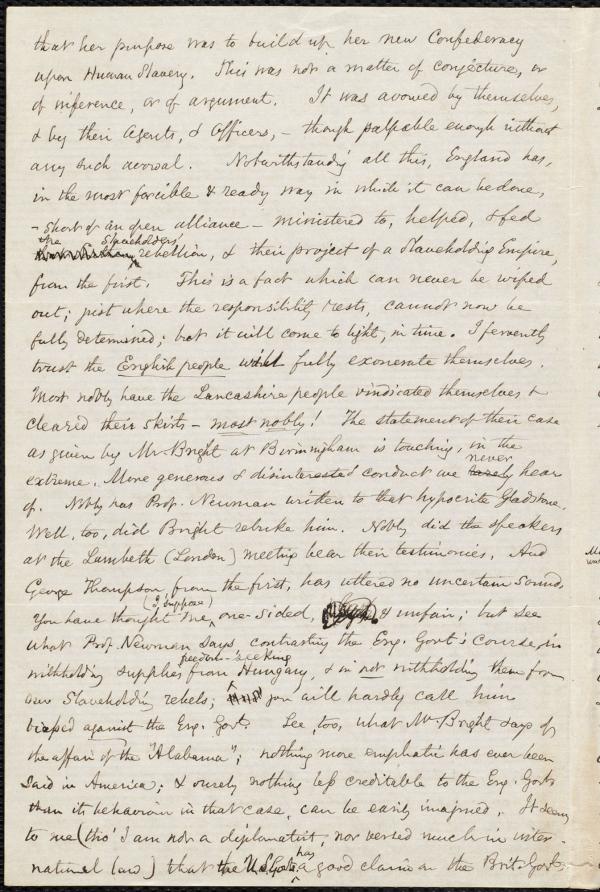 that her purpose was to build up her new Confederacy
upon Human Slavery. This was not a matter of conjecture, or
of inference, or of argument. It was avowed by themselves,
& by their Agents, & Officers, – though palpable enough without
any such avowal. Notwithstandg all this, England has,
in the most forcible & ready way in which it can be done,
– short of an open alliance – ministered to, helped, & fed
the Slaveholders'
rebellion, & their project of a Slaveholding Empire,
from the first. This is a fact which can never be wiped
out; just where the responsibility rests, cannot now be
fully determined; but it will come to light, in time. I fervently
trust the English people will fully exonerate themselves.
Most nobly have the Lancashire people vindicated themselves &
cleared their skirts – most nobly! The statement of their case
as given by Mr. Bright at Birmingham is touching, in the
never
extreme. More generous & disinterested conduct we rarely hear
of. Nobly has Prof. Newman written to that hypocrite Gladstone.
Well, too, did Bright rebuke him. Nobly did the speakers
at the Lambeth (London) meeting bear their testimonies. And
George Thompson, from the first, has uttered no uncertain sound.
(I suppose)
You have thought me, one-sided, & unfair; but see
what Prof. Newman says, contrasting the Eng. Govt's course, in
freedom-seeking
withholding supplies from Hungary, & in not withholding them from
our Slaveholding rebels; you will hardly call him
biased against the Eng. Govt. See, too, what Mr. Bright says of
the affair of the "Alabama"; nothing more emphatic has ever been
said in America; & surely nothing less creditable to the Eng. Govt.
than its behaviour in that case, can be easily imagined. It seems
to me (tho' I am not a diplomatist, nor versed much in inter-
has
national law) that the U.S. Govt. a good claim on the Brit. Govt.